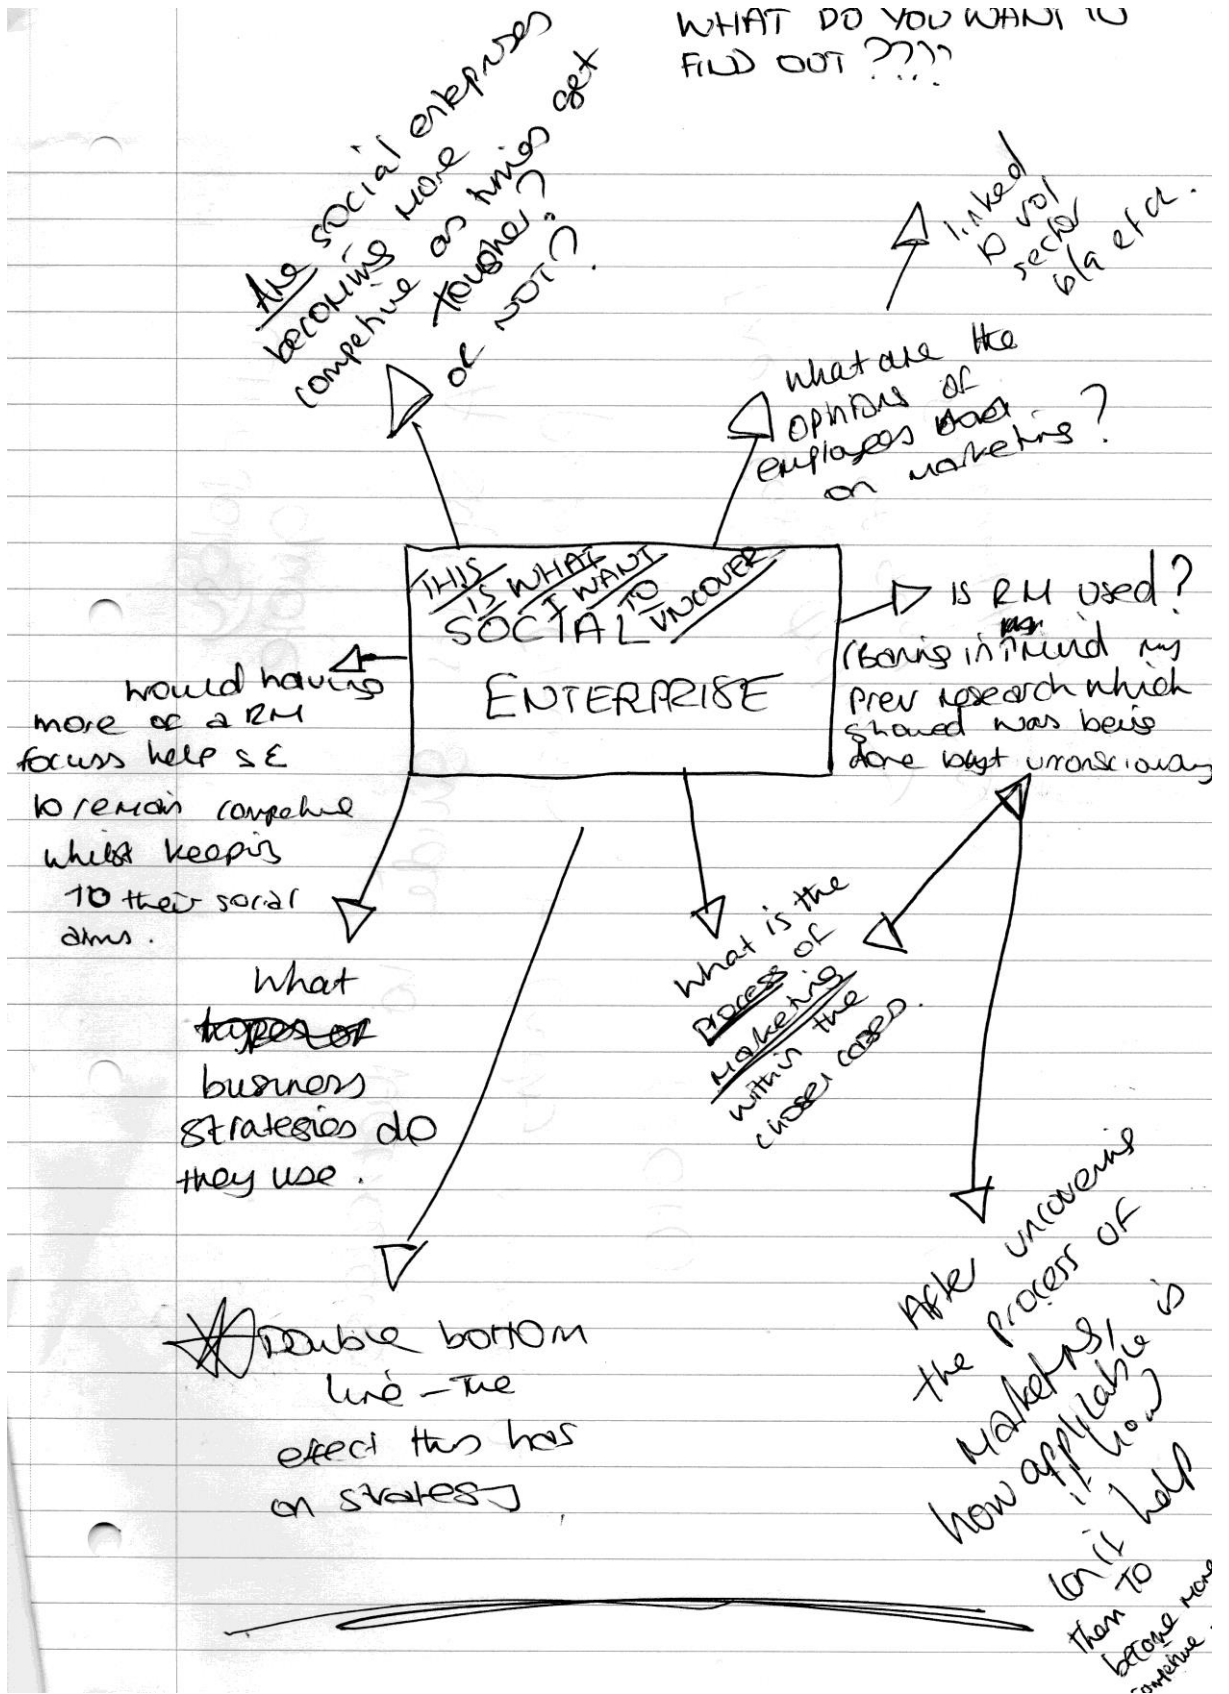 WHAT DO YOU WANT TO
FIND OUT ????
Are social enteprises
becoming more
competive as times get
tougher?
or NOT?
linked
to vol
sector
bla etc.
what are the
opinions of
employees
on marketing?
THIS
IS WHAT
I WANT
TO
UNCOVER
SOCIAL
ENTERPRISE
IS RM used?
(Baring in mind my
prev research which
showed was being
done but unconsciously
would having
more of a RM
focuss help SE
to remain competive
whilst keeping
TO their social
aims.
What
types of
business
strategies do
they use.
What is the
process of
marketing
within the
chosen cases.
Double bottom
line - The
effect this has
on strategy
After uncovering
the process of
Marketing,
how applylable is
it how
can it help
them TO
become more
competive.